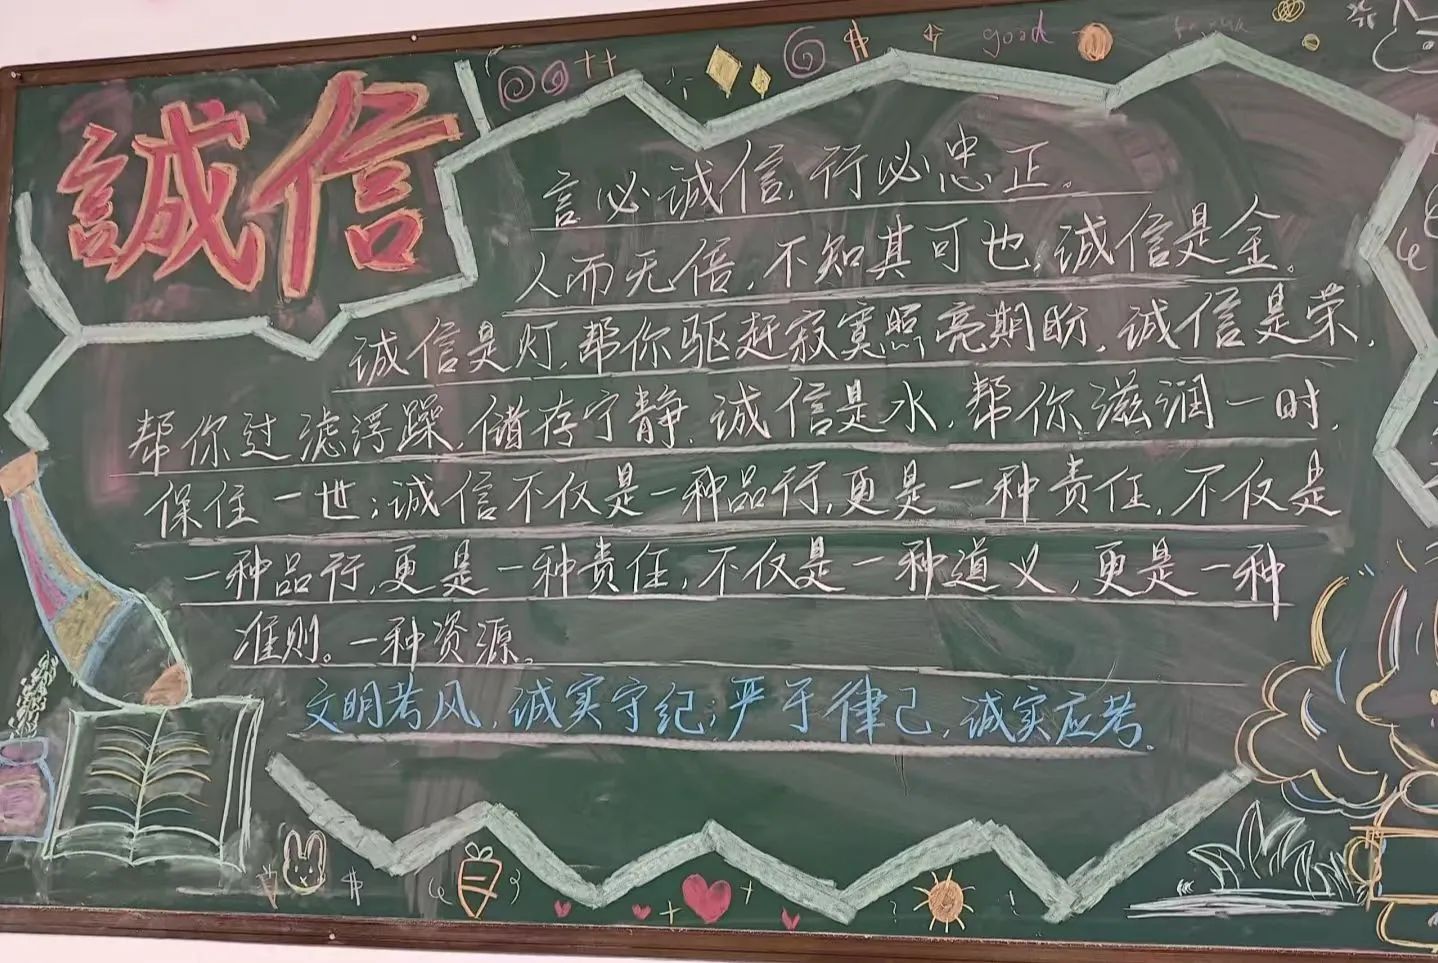 誠信
good
言必诚信,行必忠正。
人而无信,不知其可也,诚信是金。
诚信是灯,帮你驱赶寂寞照亮期盼,诚信是荣,
帮你过滤浮躁,储存宁静,诚信是水,帮你滋润一时,
保住一世;诚信不仅是一种品行,更是一种责任,不仅是
一种品行,更是一种责任,不仅是一种道义,更是一种
准则。一种资源。
文明考风,诚实守纪;严于律己,诚实应考.